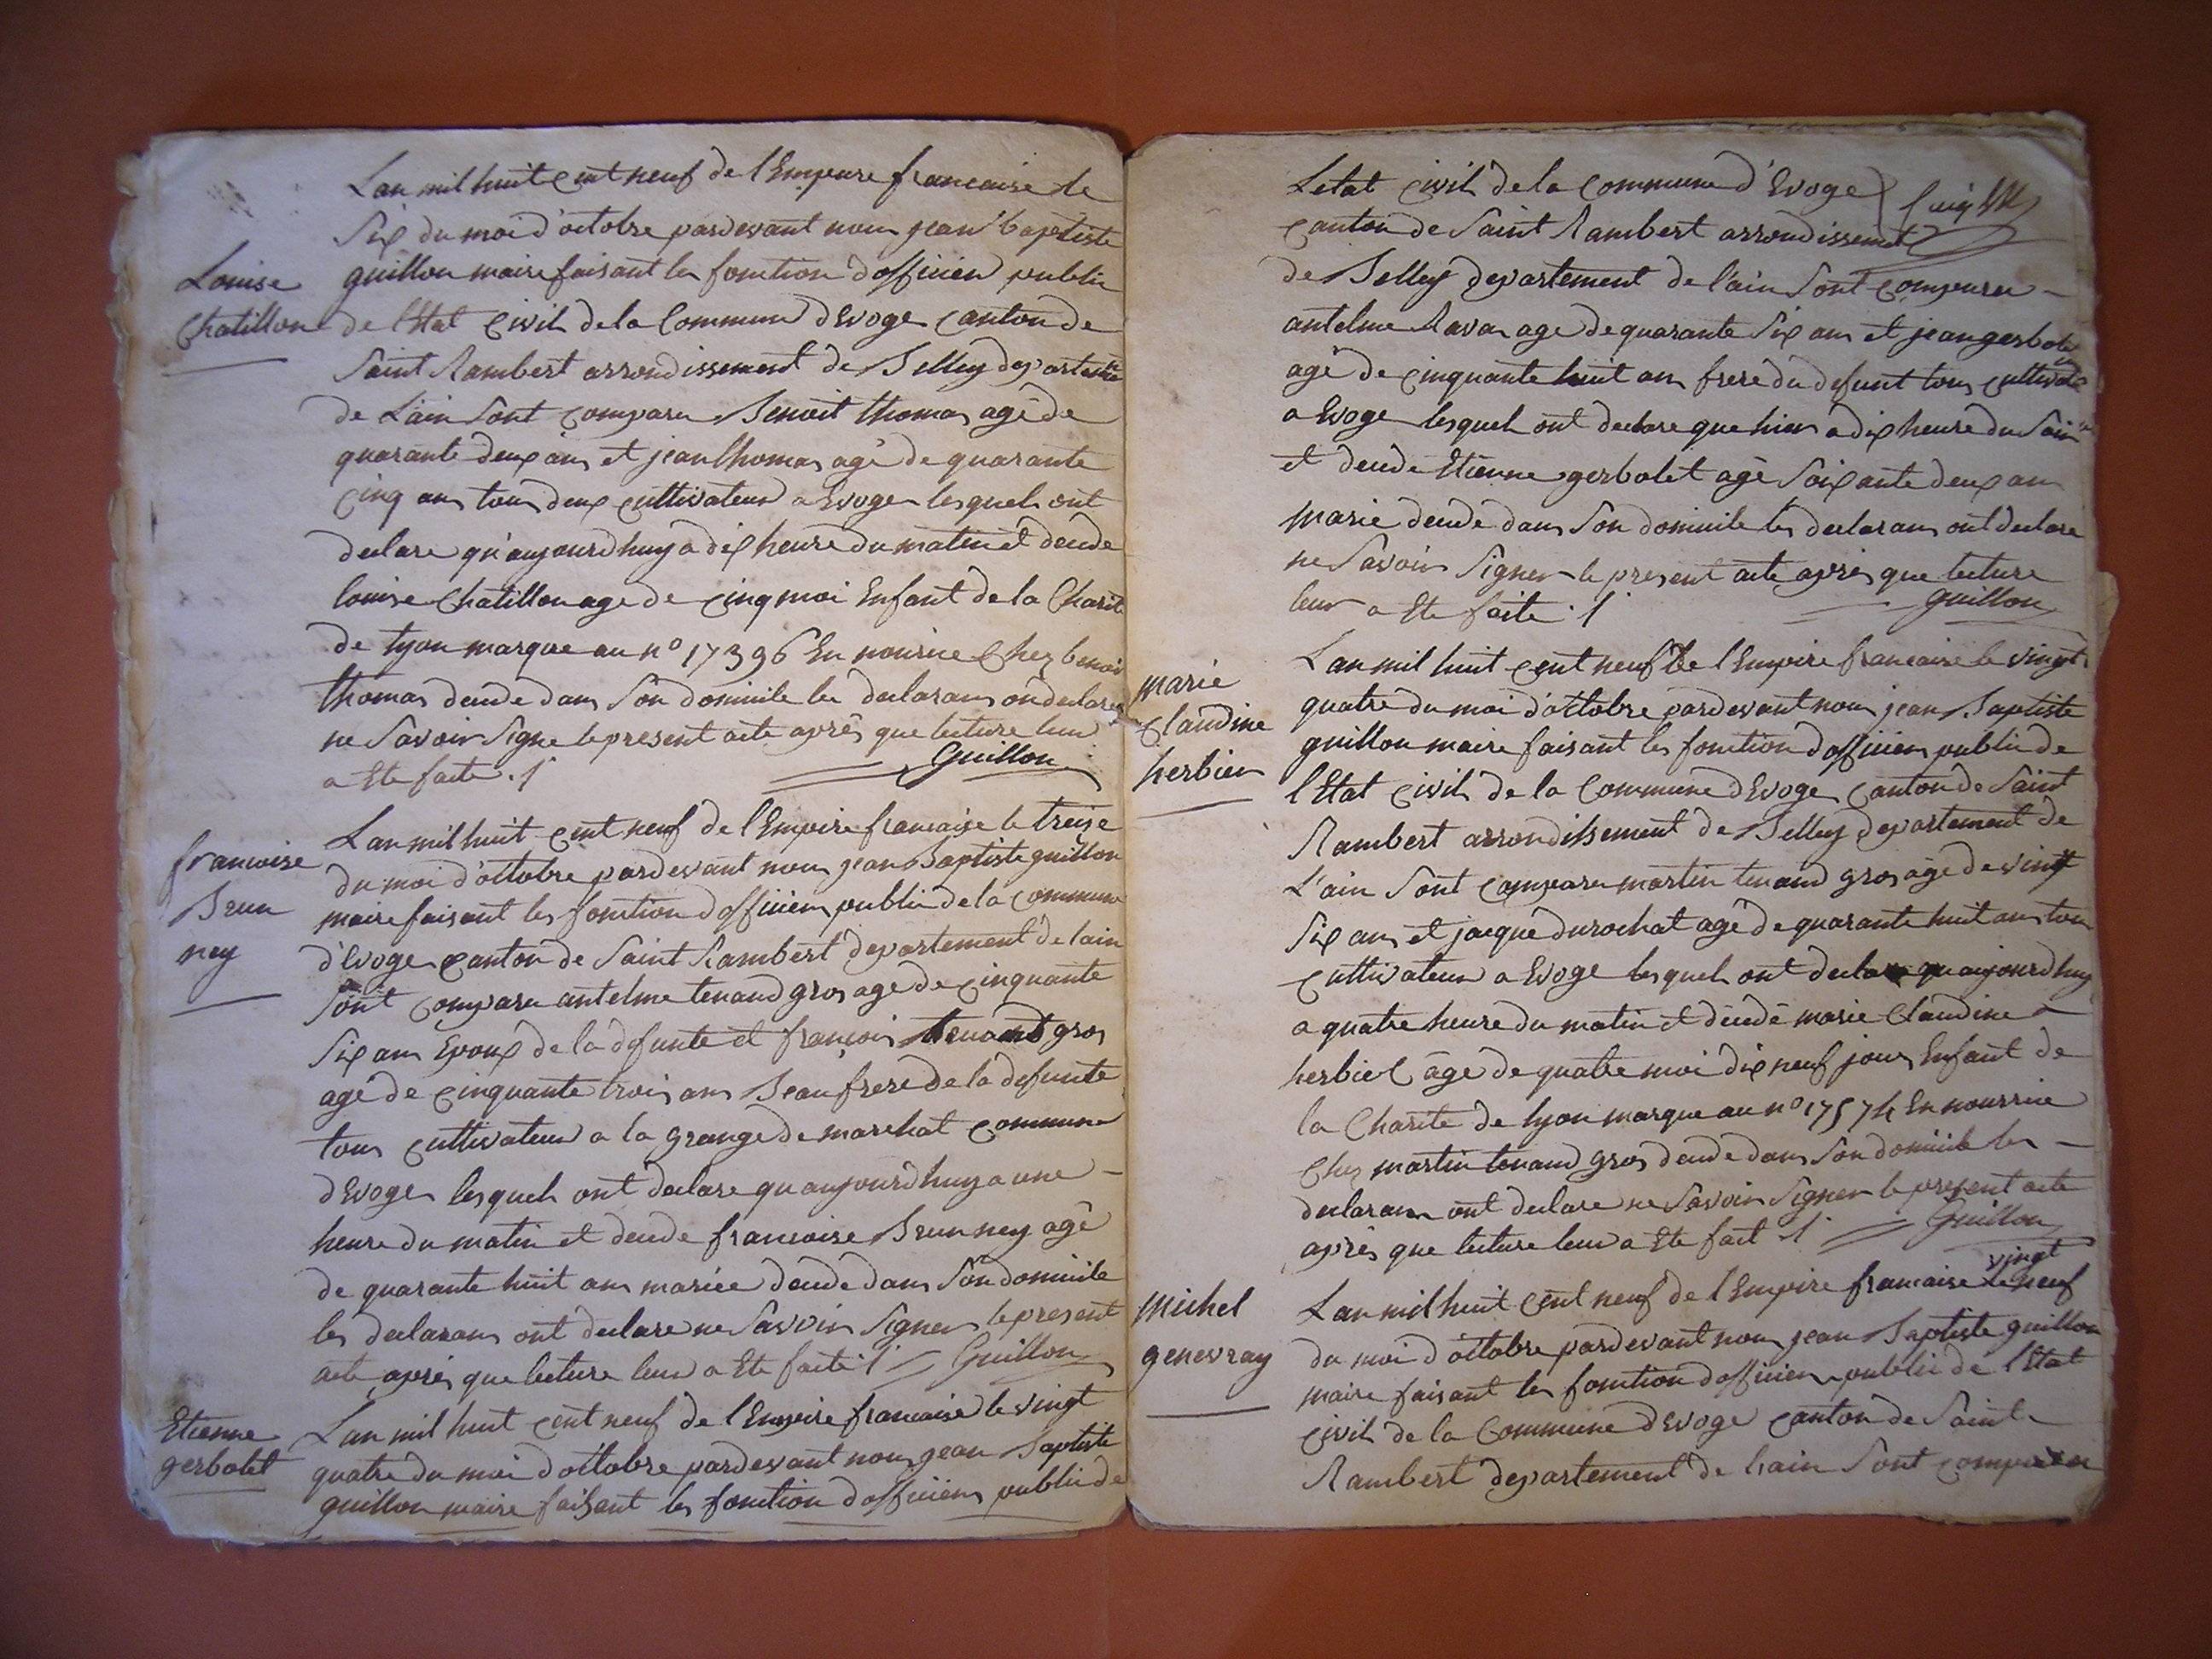 Louise
Chatillon
Lan mil huit cent neuf de l'Empire francaise le
six du moi d'octobre pardevant nous jean baptiste
guillon maire faisant les fonction d'officier public
de l'Etat civil de la commune d'Evoge canton de
saint Rambert arrondissement de Belley departement
de L'ain sont comparu Benoit thomas agé de
quarante deux ans et jean thomas agé de quarante
cinq ans tous deux cultivateur a Evoge lesquels ont
declare qu'aujourd'huy a dix heure du matin et decede
louise Chatillon age de cinq moi Enfant de la Charite
de lyon marque au n° 17396 En nourice Chez benoit
thomas decede dans son domicile les declarans on declare
ne savoir signe le present acte après que lecture leur
a Ete faite . / Guillon
francoise
Brun
ney
Lan mil huit cent neuf de l'Empire francaise le treise
du moi d'octobre pardevant nous jean Baptiste guillon
maire faisant les fonction d'officier public de la commune
d'Evoge canton de saint Rambert departement de lain
sont comparu antelme tenand gros age de cinquante
six ans Epoux de la defunte et françois tenand gros
agé de cinquante trois ans Beau frere de la defunte
tous cultivateur a la grange de marchat commune
d'Evoge lesquels ont declare qu'aujourd'huy a une -
heure du matin et decede francoise Brunney agé
de quarante huit ans mariée decede dans son domicile
les declarans ont declare ne savoir signer le present
acte après que lecture leur a Ete faite / Guillon
Etienne
gerbolet
Lan mil huit cent neuf de l'Empire francaise le vingt
quatre du moi d'octobre pardevant nous jean Baptiste
guillon maire faisant les fonction d'officier public de
Letat civil de la commune d'Evoge
canton de saint Rambert arrondissement
de Belley departement de lain sont comparu -
antelme Ravas age de quarante six ans et jean gerbolet
agé de cinquante huit ans frere du defunt tous cultivateur
a Evoge lesquels ont declare que hier a dix heure du soir
et decede Etienne gerbolet agé soixante deux ans
marie decede dans son domicile les declarans ont declare
ne savoir signer le present acte après que lecture
leur a Ete faite . / Guillon
marie
claudine
herbier
Lan mil huit cent neuf de l'Empire francaise le vingt
quatre du moi d'octobre pardevant nous jean Baptiste
guillon maire faisant les fonction d'officier public de
l'Etat civil de la commune d'Evoge canton de saint
Rambert arrondissement de Belley departement de
L'ain sont comparu martin tenand gros agé de vingt
six ans et jacque durochat agé de quarante huit ans tous
cultivateur a Evoge lesquels ont declare qu'aujourd'huy
a quatre heure du matin et décédé marie Claudine
herbier agé de quatre moi dix neuf jours Enfant de
la Charite de lyon marque au n° 17574 En nourrice
Chez martin tenand gros decede dans son domicile les -
declarans ont declare ne savoir signer le present acte
après que lecture leur a Ete fait / Guillon
michel
genevray
Lan mil huit cent neuf de l'Empire francaise le vingt neuf
du moi d'octobre pardevant nous jean Baptiste guillon
maire faisant les fonction d'officier public de l'Etat
civil de la commune d'Evoge canton de saint
Rambert departement de lain sont comparu